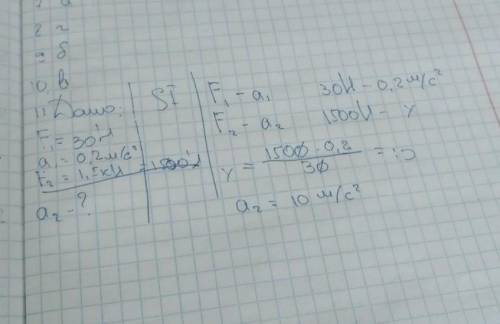 2 г
= б
10. в
11. Дано: SI
F₁ = 30 Н
a₁ = 0,2 м/с²
F₂ = 1,5 кН = 1500 Н
a₂ - ?
F₁ - a₁ 30 Н - 0,2 м/с²
F₂ - a₂ 1500 Н - γ
γ = 1500 · 0,2 / 30 =
a₂ = 10 м/с²